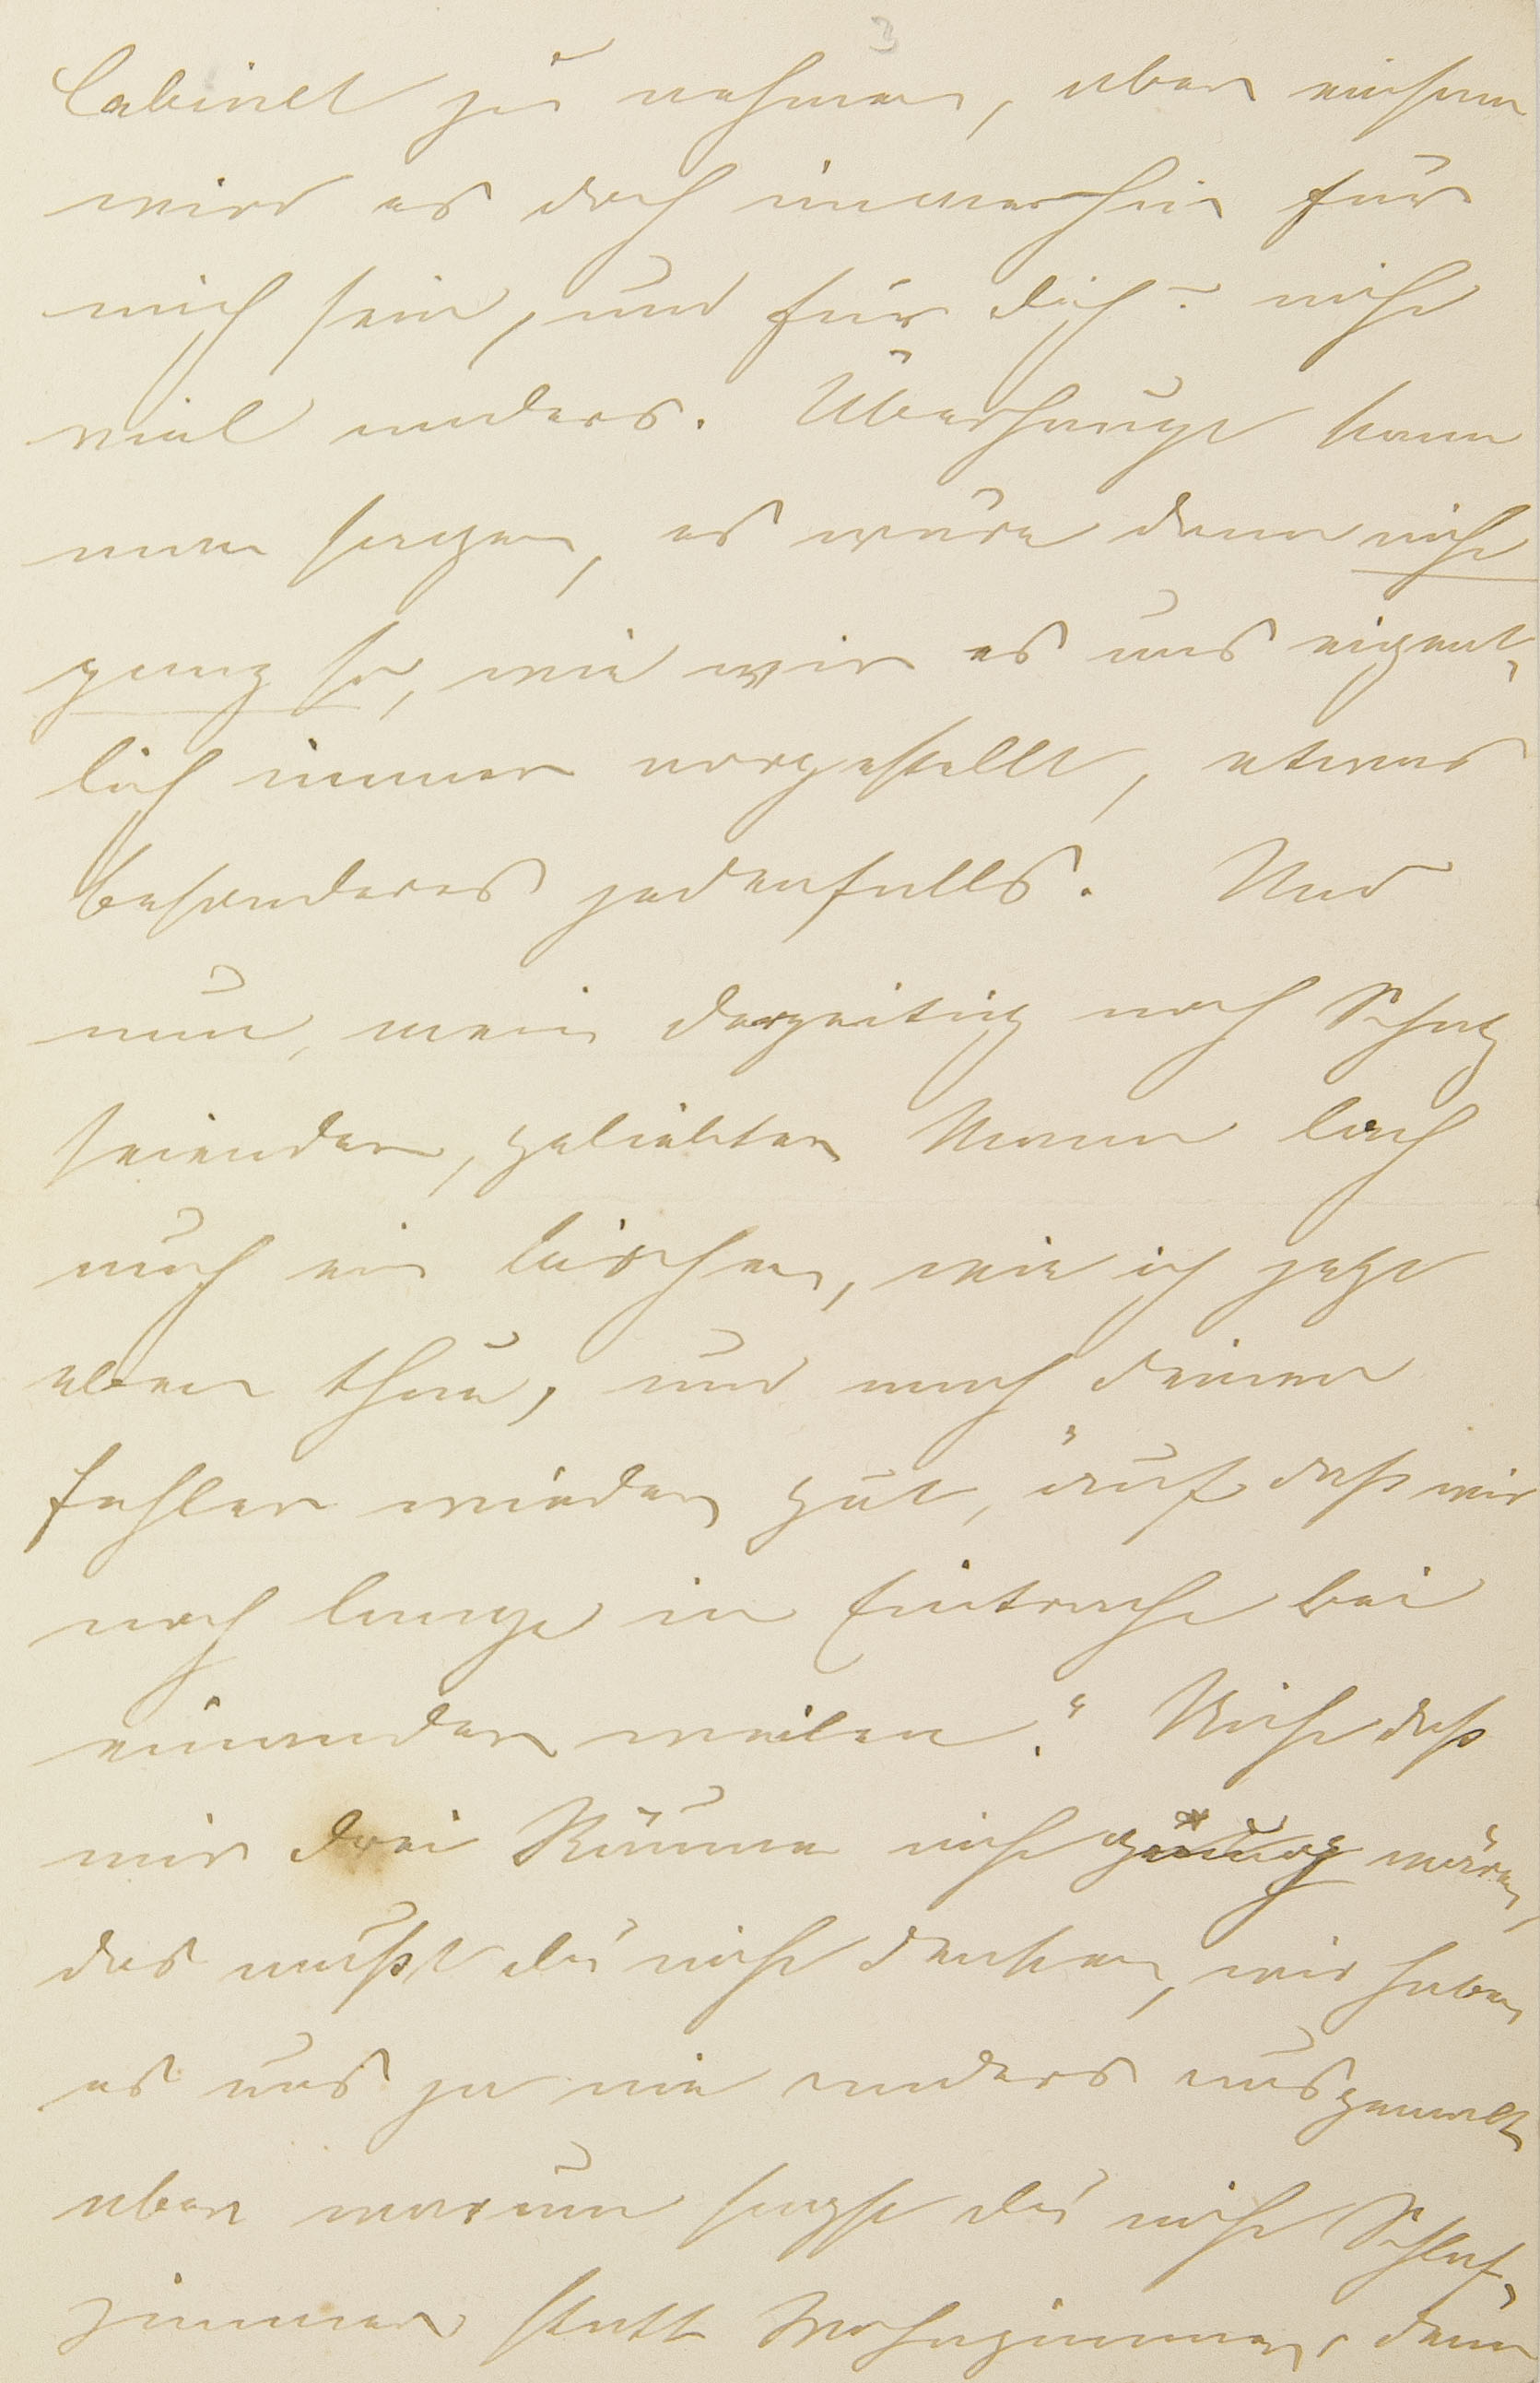 3
Cabinet zu nehmen, aber einsam
wird es doch immerhin für
mich sein, und für dich? nicht
viel anders. Überhaupt kann
man sagen, es wäre dann nicht
ganz so, wie wir es uns eigent-
lich immer vorgestellt, etwas
besonderes jedenfalls. Und
nun, mein derzeitig noch Schatz
seiender, geliebter Mann lach
auch ein bischen, wie ich jetzt
eben thue, und mach deinen
Fehler wieder gut, "auf daß wir
noch lange in Eintracht bei
einander weilen." Nicht daß
mir drei Räume nicht genug wären,
das mußt du nicht denken, wir haben
es uns ja nie anders ausgemalt
aber warum sagst du nicht Schlaf-
zimmer statt Wohnzimmer, denn